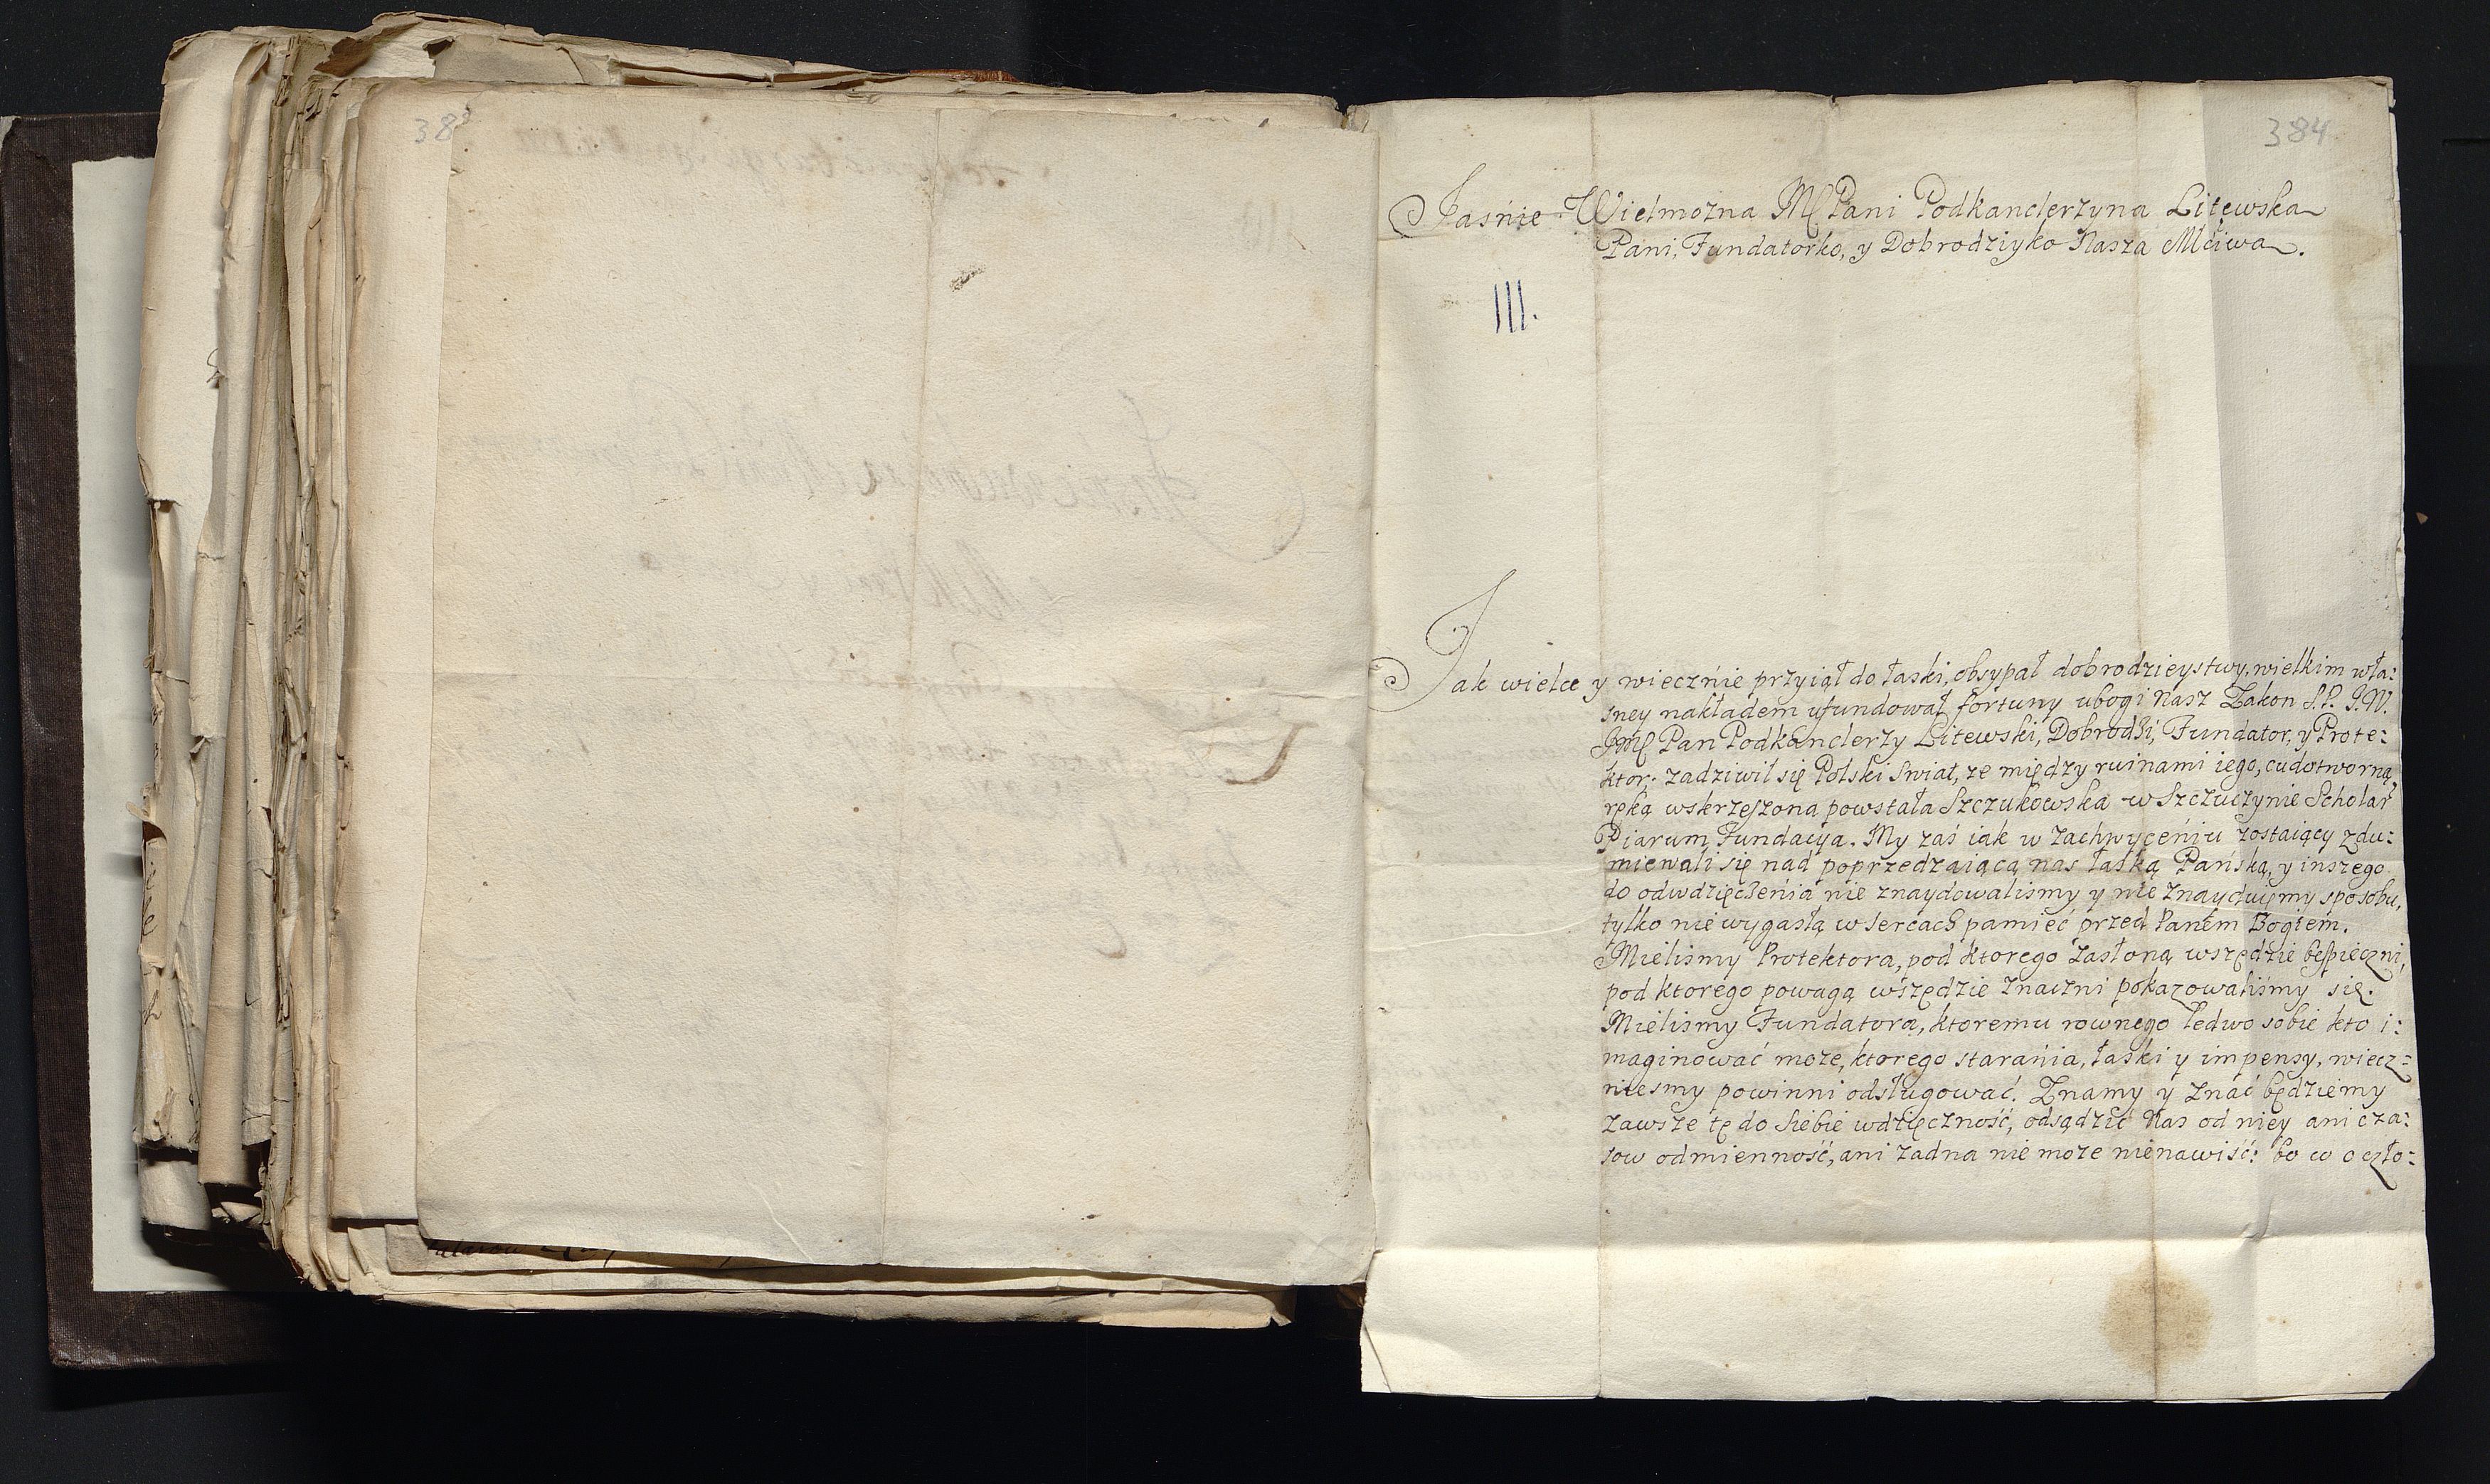 383
384
Jaśnie Wielmozna Mę Pani Podkanclerzyna Litewska
Pani, Fundatorko, y Dobrodziyko Nasza Mściwa.
III.
Jak wielce y wiecznie przyiął do łaski, obsypał dobrodzieystwy, wielkim wła:
sney nakładem ufundował fortuny ubogi Nasz Zakon S.P. J.W.
Jmę Pan Podkanclerzy Litewski, Dobrodźi, Fundator, y Prote:
ktor; zadziwił się Polski Swiat, ze między ruinami iego, cudotworną
ręką wskrzeszona powstała Szczukowska w Szczuczynie Scholar
Piarum Fundacya. My zaś iak w zachwyceniu zostaiący zdu:
miewali się nad poprzedzaiącą nas łaską Pańską, y inszego
do odwdzięczenia nie znaydowalismy y nie znayduiemy sposobu,
tylko niewygasłą w sercach pamieć przed Panem Bogiem.
Mielismy Protektora, pod ktorego zasłoną wszędzie bespieczni,
pod ktorego powagą wszędzie znaczni pokazowaliśmy się.
Mielismy Fundatora, ktoremu rownego ledwo sobie kto i:
maginować moze, ktorego starania, łaski y impensy, wiecz:
niesmy powinni odsługować. Znamy y znać będziemy
zawsze tę do siebie wdzięczność, odsądzić Nas od niey ani cza:
sow odmienność, ani zadna nie moze nienawiść: bo co o czło: